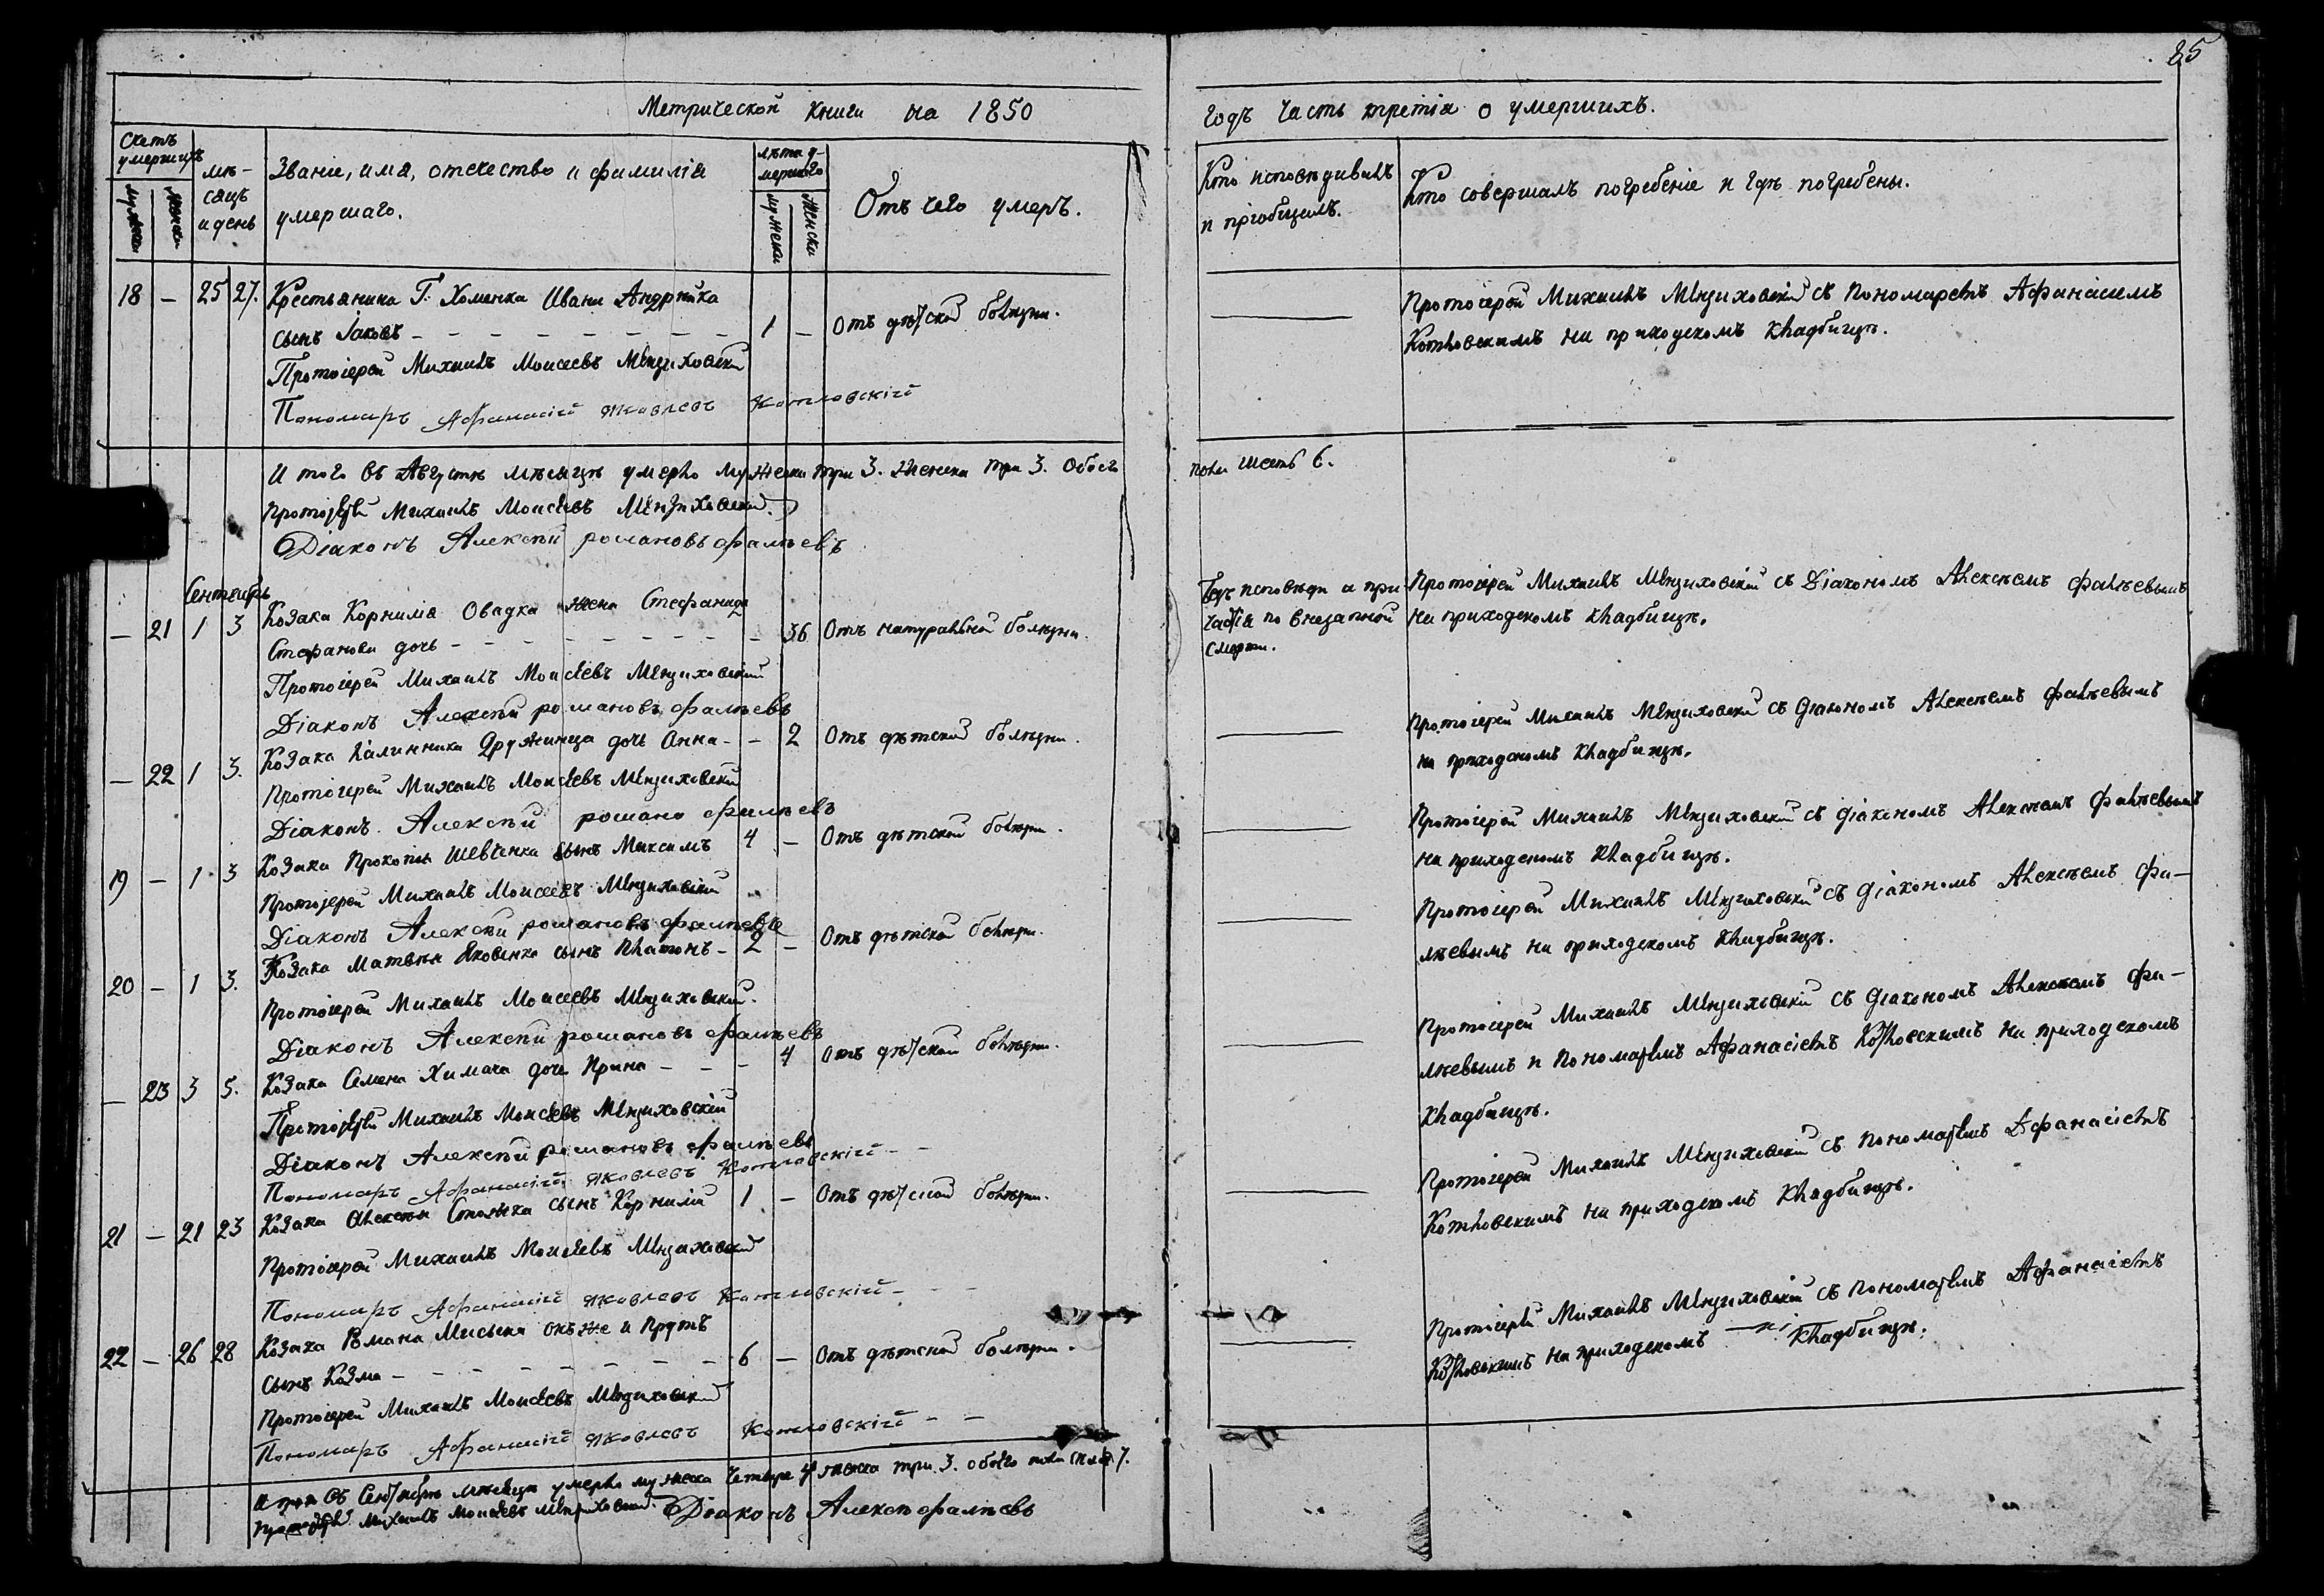 85
Метрической книги на 1850
годъ часть третія о умершихъ.
Счетъ умершихъ
мужеска
женска
мѣ-
сяцъ
и день
Званіе, имя, отечество и фамилія
умершаго.
лѣта у-
мершаго
мужеска
женска
Отъ чего умеръ.
Кто исповѣдивалъ
и пріобщалъ.
Кто совершалъ погребеніе и гдѣ погребены.
18 — 25 27. Крестьянина Г. Хоменка Ивана Андрѣйка
сынъ Іаковъ — 1 — Отъ дѣтской болѣзни.
Протоіерей Михаилъ Моисеевъ
Пономаръ Афанасій Яковлевъ Котловскій
Протоіерей Михаилъ съ пономаремъ Афанасиемъ
Котловскимъ на приходскомъ кладбищѣ.
И того въ Августѣ мѣсяцѣ умерло мужеска три 3. женска три 3. обоего
пола шесть 6.
Протоіерей Михаилъ Моисеевъ
Діаконъ Алексѣй романовъ фалѣевъ
Сентябрь
— 21 1 3 Козака Корнилія Овадка жена Стефанида
Стефанова дочь — 36 Отъ натуральной болѣзни.
Протоіерей Михаилъ Моисеевъ
Діаконъ Алексѣй романовъ фалѣевъ
Безъ исповѣди и при-
частія по внезапной
смерти.
Протоіерей Михаилъ съ Діакономъ Алексѣемъ фалѣевымъ
на приходскомъ кладбищѣ.
— 22 1 3. Козака Калинника Дружинца дочь Анна — 2 Отъ дѣтской болѣзни.
Протоіерей Михаилъ Моисеевъ
Діаконъ Алексѣй романо фалѣевъ
Протоіерей Михаилъ съ діакономъ Алексѣемъ фалѣевымъ
на приходскомъ кладбищѣ.
19 — 1 3 Козака Прокопія Шевченка сынъ Максимъ 4 — Отъ дѣтской болѣзни.
Протоіерей Михаилъ Моисеевъ
Діаконъ Алексѣй романовъ фалѣевъ
Протоіерей Михаилъ съ діакономъ Алексѣемъ фалѣевымъ
на приходскомъ кладбищѣ.
20 — 1 3. Козака Матвѣя Яковенка сынъ Платонъ — 2 — Отъ дѣтской болѣзни.
Протоіерей Михаилъ Моисеевъ
Діаконъ Алексѣй романовъ фалѣевъ
Протоіерей Михаилъ съ діакономъ Алексѣемъ фа-
лѣевымъ на приходскомъ кладбищѣ.
— 23 3 5. Козака Семена Химача дочь Ирина — 4 Отъ дѣтской болѣзни.
Протоіерей Михаилъ Моисеевъ
Діаконъ Алексѣй романовъ фалѣевъ
Пономаръ Афанасій Яковлевъ Котловскій
Протоіерей Михаилъ съ діакономъ Алексѣемъ фа-
лѣевымъ и пономаремъ Афанасіемъ Котловскимъ на приходскомъ
кладбищѣ.
21 — 21 23 Козака Алексѣя сынъ Корнилій 1 — Отъ дѣтской болѣзни.
Протоіерей Михаилъ Моисеевъ
Пономаръ Афанасій Яковлевъ Котловскій
Протоіерей Михаилъ съ пономаремъ Афанасіемъ
Котловскимъ на приходскомъ кладбищѣ.
22 — 26 28 Козака Романа онъ же и
сынъ Козма — 6 — Отъ дѣтской болѣзни.
Протоіерей Михаилъ Моисеевъ
Пономаръ Афанасій Яковлевъ Котловскій
Протоіерей Михаилъ съ пономаремъ Афанасіемъ
Котловскимъ на приходскомъ кладбищѣ.
И того въ Сентябрѣ мѣсяцѣ умерло мужеска четыре 4 женска три 3. обоего пола 7.
Протоіерей Михаилъ Моисеевъ
Діаконъ Алексѣ фалѣевъ